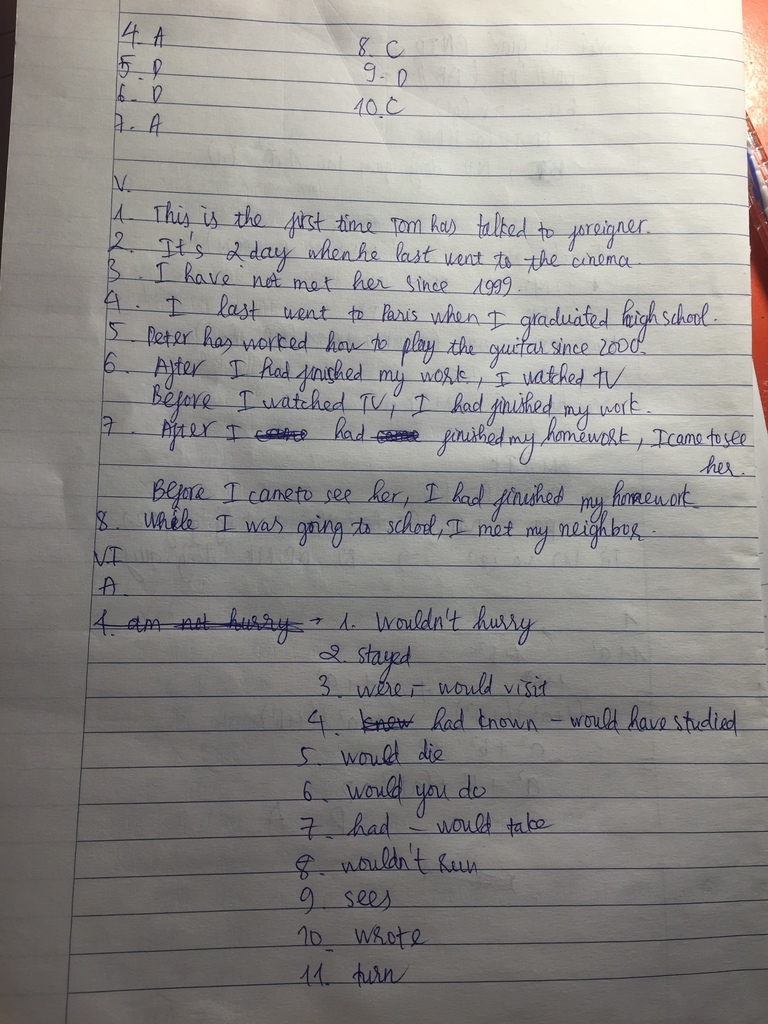 4. A
5. D
6. D
7. A
8. C
9. D
10. C
V.
1. This is the first time Tom has talked to foreigner.
2. It's 2 day when he last went to the cinema.
3. I have not met her since 1999.
4. I last went to Paris when I graduated high school.
5. Peter has worked how to play the guitar since 2000.
6. After I had finished my work, I watched TV
Before I watched TV, I had finished my work.
7. After I came had came finished my homework, I came to see
her.
Before I came to see her, I had finished my homework
8. While I was going to school, I met my neighbor.
VI
A.
1. am not hurry → 1. Wouldn't hurry
2. stayed
3. were - would visit
4. knew had known - would have studied
5. would die
6. would you do
7. had - would take
8. wouldn't run
9. sees
10. wrote
11. turn